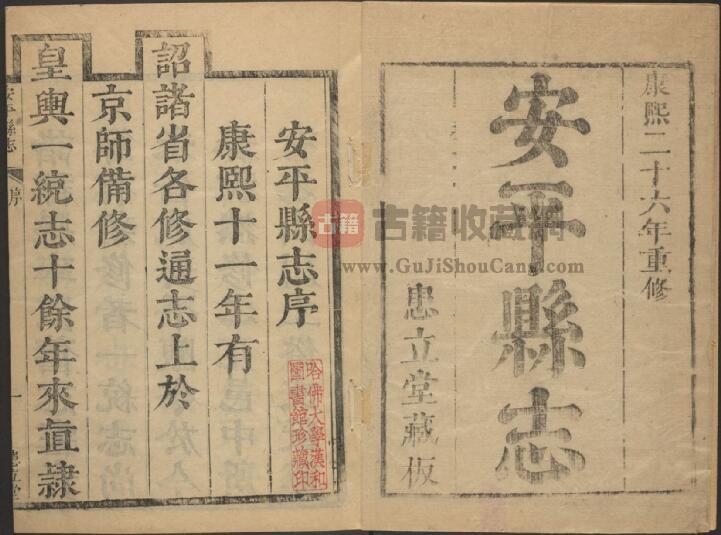 康熙二十六年重修
安平縣志
忠立堂藏板
安平縣志序
康熙十一年有
詔諸省各修通志上於
京師備修
皇輿一統志十餘年來直隷
哈佛大學漢和
圖書館珍藏印
安平縣志
序
一
古籍
古籍收藏網
www.GuJiShouCang.com